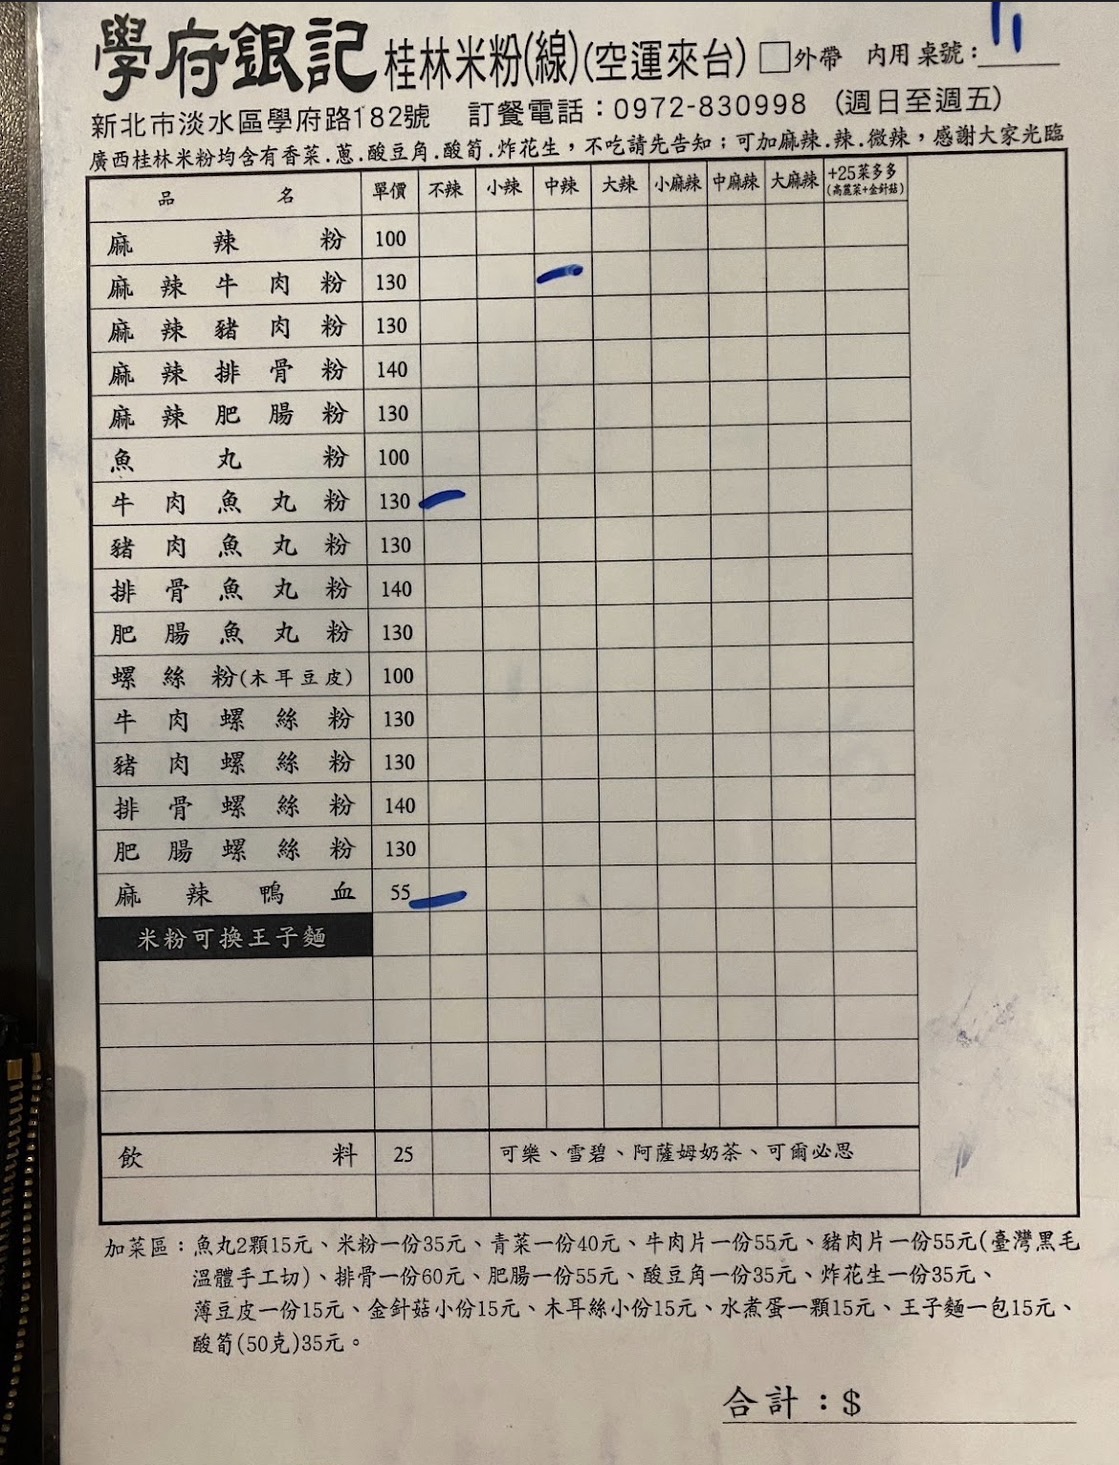 學府銀記 桂林米粉(線)(空運來台) □外帶 內用 桌號：11
新北市淡水區學府路182號 訂餐電話：0972-830998 (週日至週五)
廣西桂林米粉均含有香菜.蔥.酸豆角.酸筍.炸花生，不吃請先告知；可加麻辣.辣.微辣，感謝大家光臨
品名 單價 不辣 小辣 中辣 大辣 小麻辣 中麻辣 大麻辣 +25菜多多(高麗菜+金針菇)
麻辣粉 100
麻辣牛肉粉 130
麻辣豬肉粉 130
麻辣排骨粉 140
麻辣肥腸粉 130
魚丸粉 100
牛肉魚丸粉 130
豬肉魚丸粉 130
排骨魚丸粉 140
肥腸魚丸粉 130
螺絲粉(木耳豆皮) 100
牛肉螺絲粉 130
豬肉螺絲粉 130
排骨螺絲粉 140
肥腸螺絲粉 130
麻辣鴨血 55
米粉可換王子麵
飲料 25 可樂、雪碧、阿薩姆奶茶、可爾必思
加菜區：魚丸2顆15元、米粉一份35元、青菜一份40元、牛肉片一份55元、豬肉片一份55元(臺灣黑毛
溫體手工切)、排骨一份60元、肥腸一份55元、酸豆角一份35元、炸花生一份35元、
薄豆皮一份15元、金針菇小份15元、木耳絲小份15元、水煮蛋一顆15元、王子麵一包15元、
酸筍(50克)35元。
合計：$